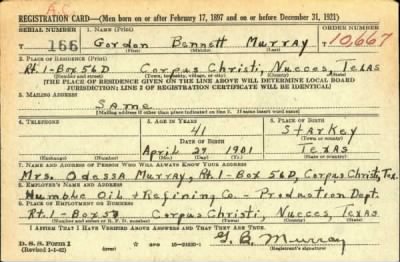 A.C.
REGISTRATION CARD—(Men born on or after February 17, 1897 and on or before December 31, 1921)
SERIAL NUMBER 1. NAME (Print) ORDER NUMBER
T 166 Gordon Bennett Murray 10,667
(First) (Middle) (Last)
2. PLACE OF RESIDENCE (Print)
Rt.1-Box 56D Corpus Christi, Nueces, Texas
(Number and street) (Town, township, village, or city) (County) (State)
[THE PLACE OF RESIDENCE GIVEN ON THE LINE ABOVE WILL DETERMINE LOCAL BOARD
JURISDICTION; LINE 2 OF REGISTRATION CERTIFICATE WILL BE IDENTICAL]
3. MAILING ADDRESS
Same
[Mailing address if other than place indicated on line 2. If same insert word same]
4. TELEPHONE 5. AGE IN YEARS 6. PLACE OF BIRTH
41 Starkey
DATE OF BIRTH (Town or county)
April 29 1901 Texas
(Exchange) (Number) (Mo.) (Day) (Yr.) (State or country)
7. NAME AND ADDRESS OF PERSON WHO WILL ALWAYS KNOW YOUR ADDRESS
Mrs. Odessa Murray, Rt.1-Box 56D, Corpus Christi, Tex.
8. EMPLOYER'S NAME AND ADDRESS
Humble Oil & Refining Co - Production Dept.
9. PLACE OF EMPLOYMENT OR BUSINESS
Rt.1-Box 57 Corpus Christi, Nueces, Texas
(Number and street or R. F. D. number) (Town) (County) (State)
I AFFIRM THAT I HAVE VERIFIED ABOVE ANSWERS AND THAT THEY ARE TRUE.
D. S. S. Form 1 G. B. Murray
(Revised 1-1-42) (Registrant's signature)